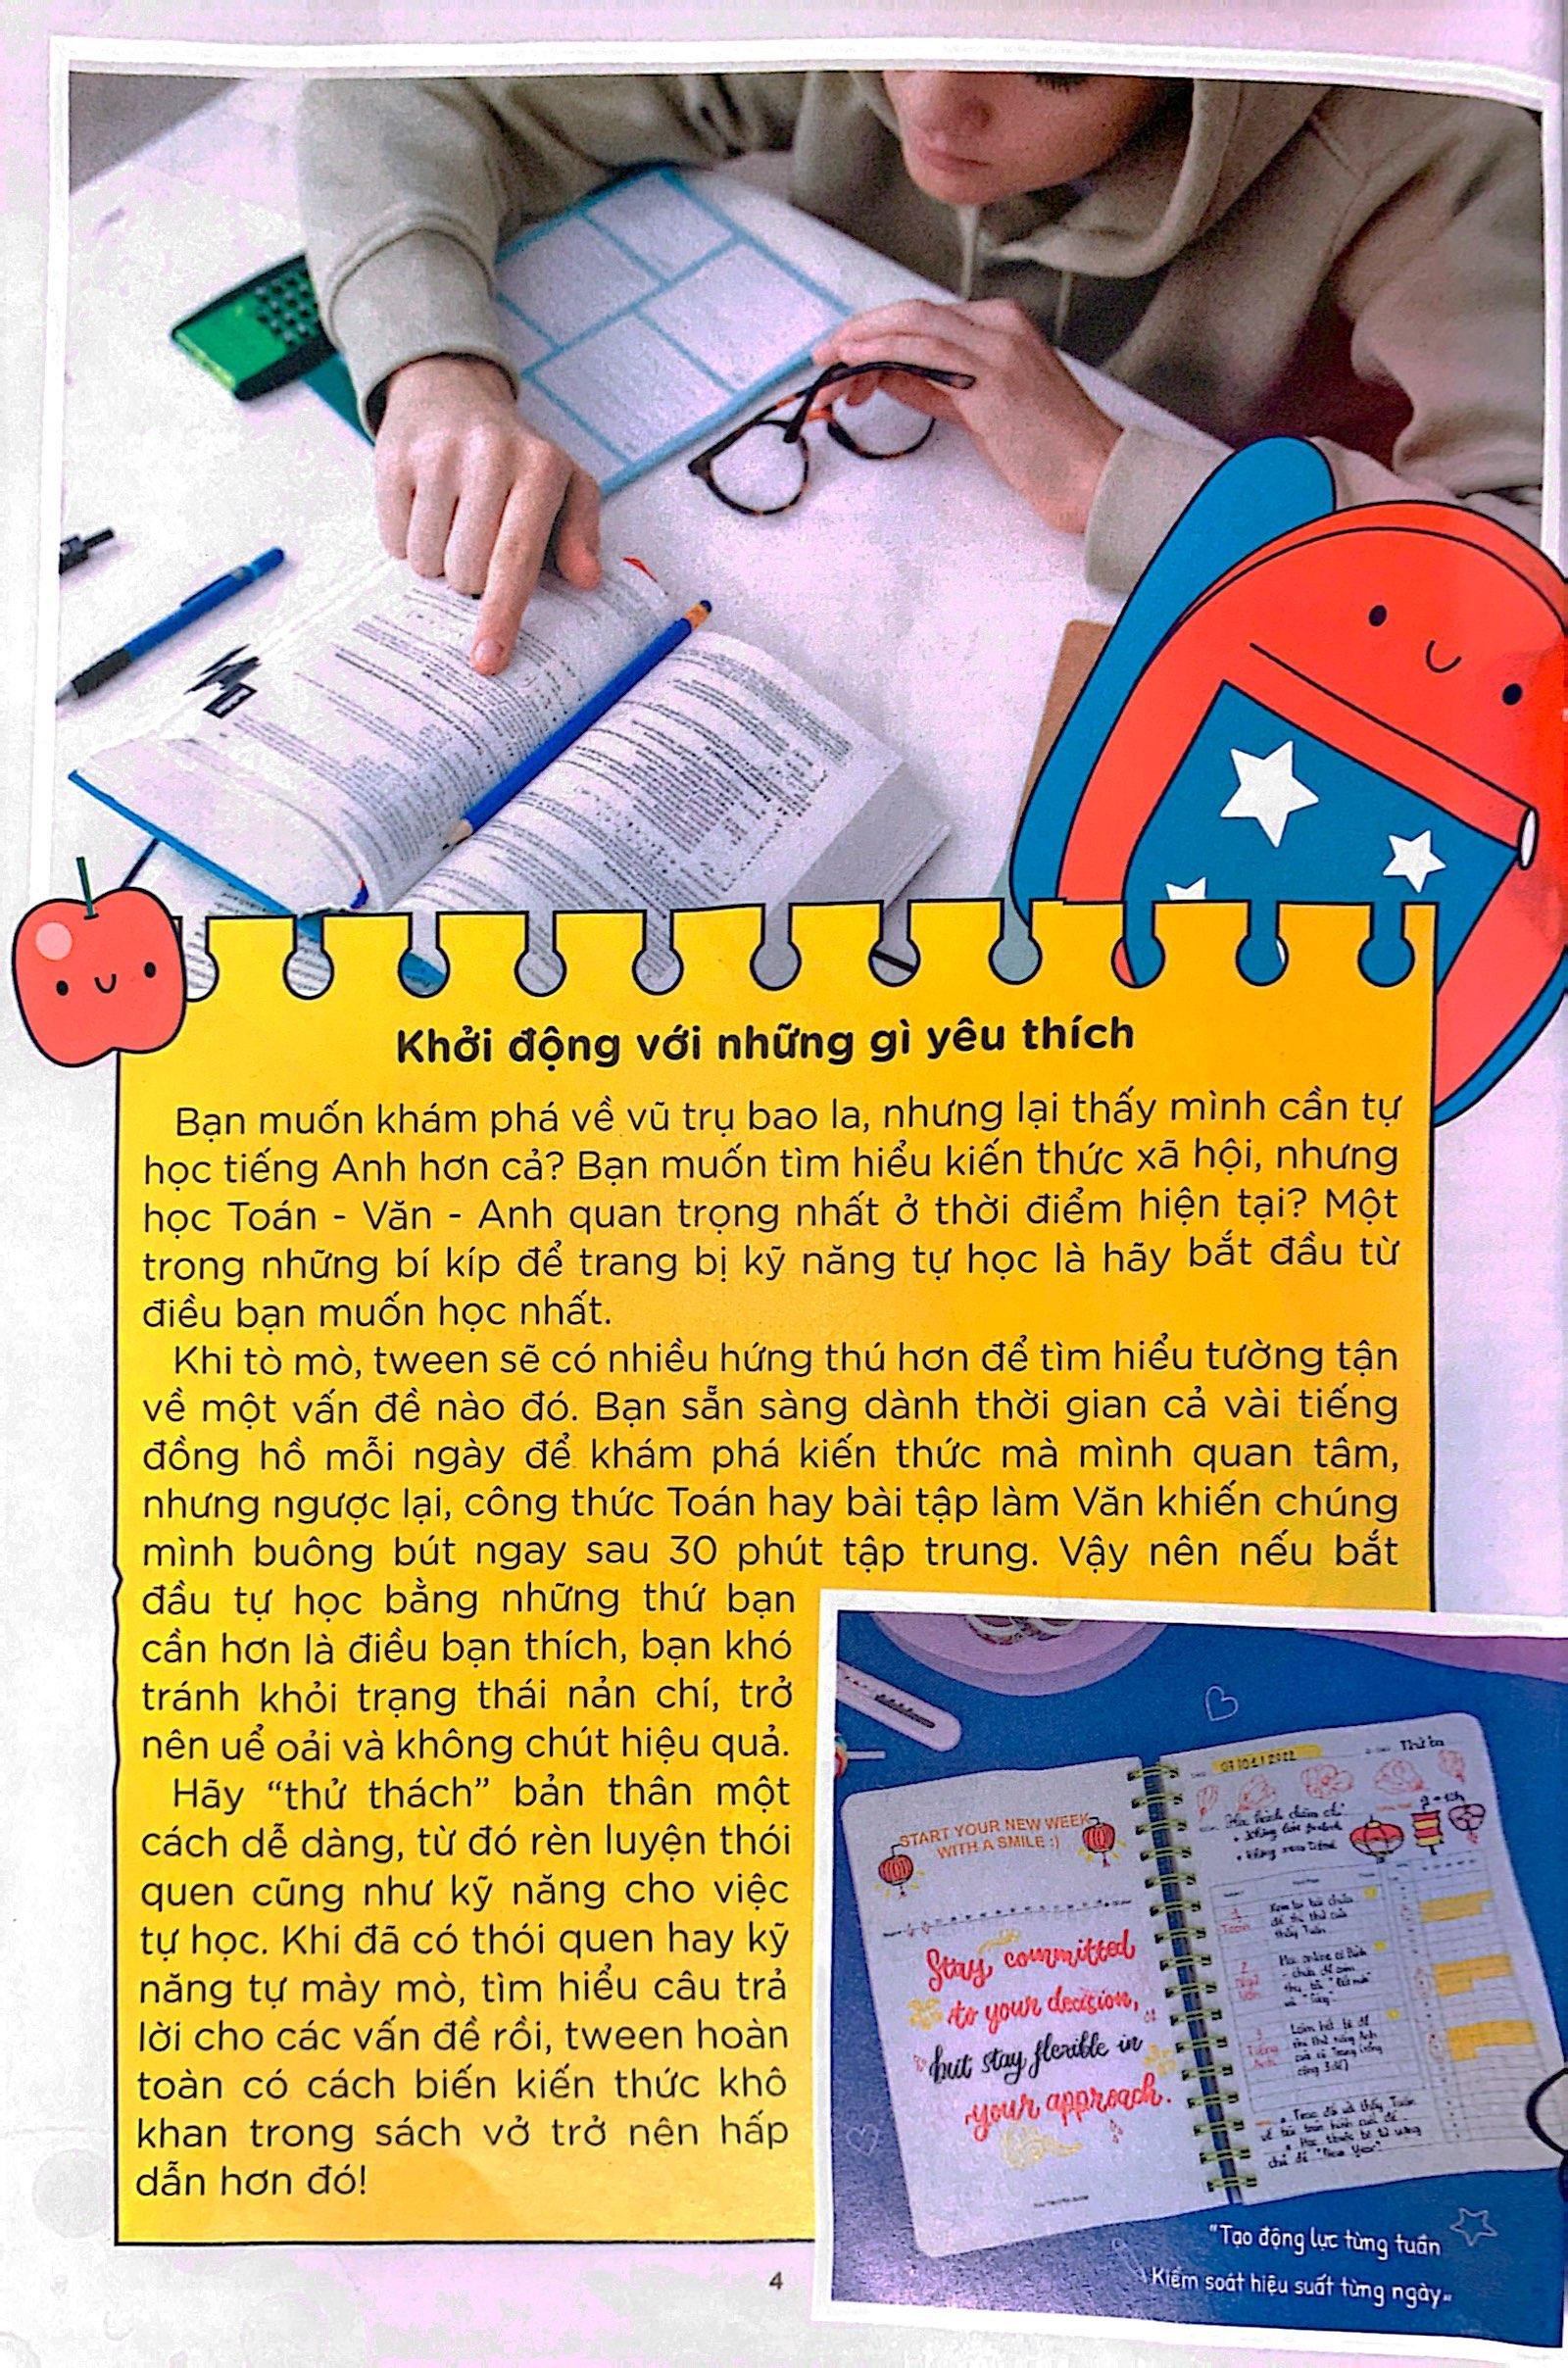 Khởi động với những gì yêu thích
Bạn muốn khám phá về vũ trụ bao la, nhưng lại thấy mình cần tự
học tiếng Anh hơn cả? Bạn muốn tìm hiểu kiến thức xã hội, nhưng
học Toán - Văn - Anh quan trọng nhất ở thời điểm hiện tại? Một
trong những bí kíp để trang bị kỹ năng tự học là hãy bắt đầu từ
điều bạn muốn học nhất.
Khi tò mò, tween sẽ có nhiều hứng thú hơn để tìm hiểu tường tận
về một vấn đề nào đó. Bạn sẵn sàng dành thời gian cả vài tiếng
đồng hồ mỗi ngày để khám phá kiến thức mà mình quan tâm,
nhưng ngược lại, công thức Toán hay bài tập làm Văn khiến chúng
mình buông bút ngay sau 30 phút tập trung. Vậy nên nếu bắt
đầu tự học bằng những thứ bạn
cần hơn là điều bạn thích, bạn khó
tránh khỏi trạng thái nản chí, trở
nên uể oải và không chút hiệu quả.
Hãy "thử thách" bản thân một
cách dễ dàng, từ đó rèn luyện thói
quen cũng như kỹ năng cho việc
tự học. Khi đã có thói quen hay kỹ
năng tự mày mò, tìm hiểu câu trả
lời cho các vấn đề rồi, tween hoàn
toàn có cách biến kiến thức khô
khan trong sách vở trở nên hấp
dẫn hơn đó!
START YOUR NEW WEEK
WITH A SMILE :)
Stay committed
to your decision,
but stay flexible in
your approach.
Thứ ba
Toán
Tiếng
Anh
"New Year"
"Tạo động lực từng tuần
Kiểm soát hiệu suất từng ngày"
4